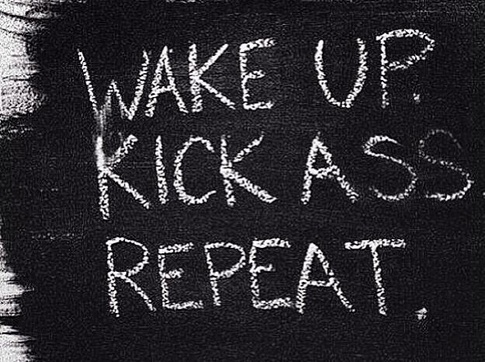 WAKE UP.
KICK ASS.
REPEAT.